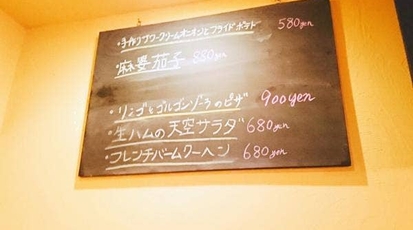 ・手作りサワークリームオニオンとフライドポテト 580yen
麻婆茄子 880yen
・リンゴとゴルゴンゾーラのピザ 900yen
・生ハムの天空サラダ 680yen
・フレンチバームクーヘン 680yen